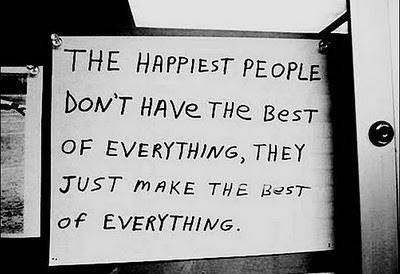 THE HAPPIEST PEOPLE
DON'T HAVE THE BEST
OF EVERYTHING, THEY
JUST MAKE THE BEST
OF EVERYTHING.